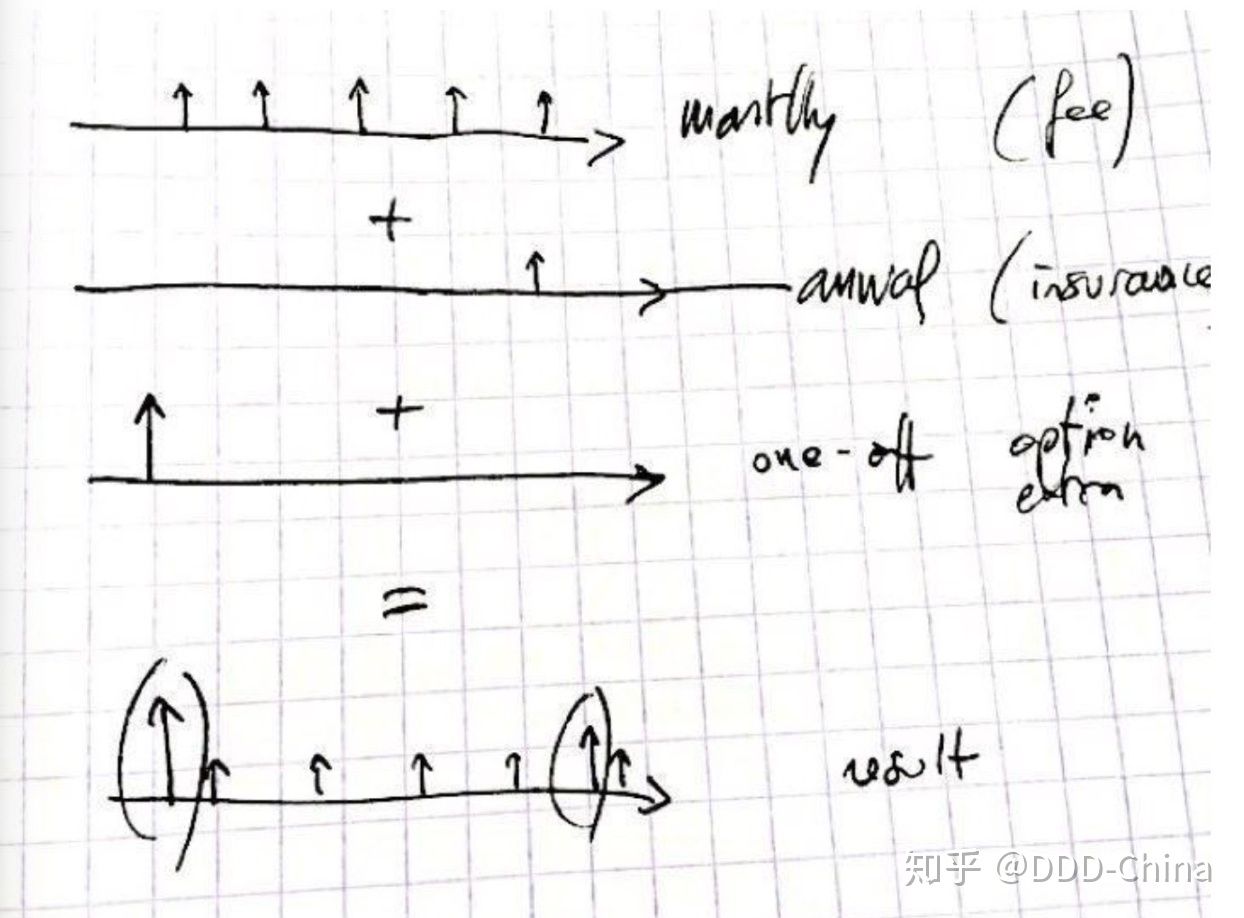 monthly (fee)
+
annual (insurance
+
one-off option
extra
=
result
知乎 @DDD-China